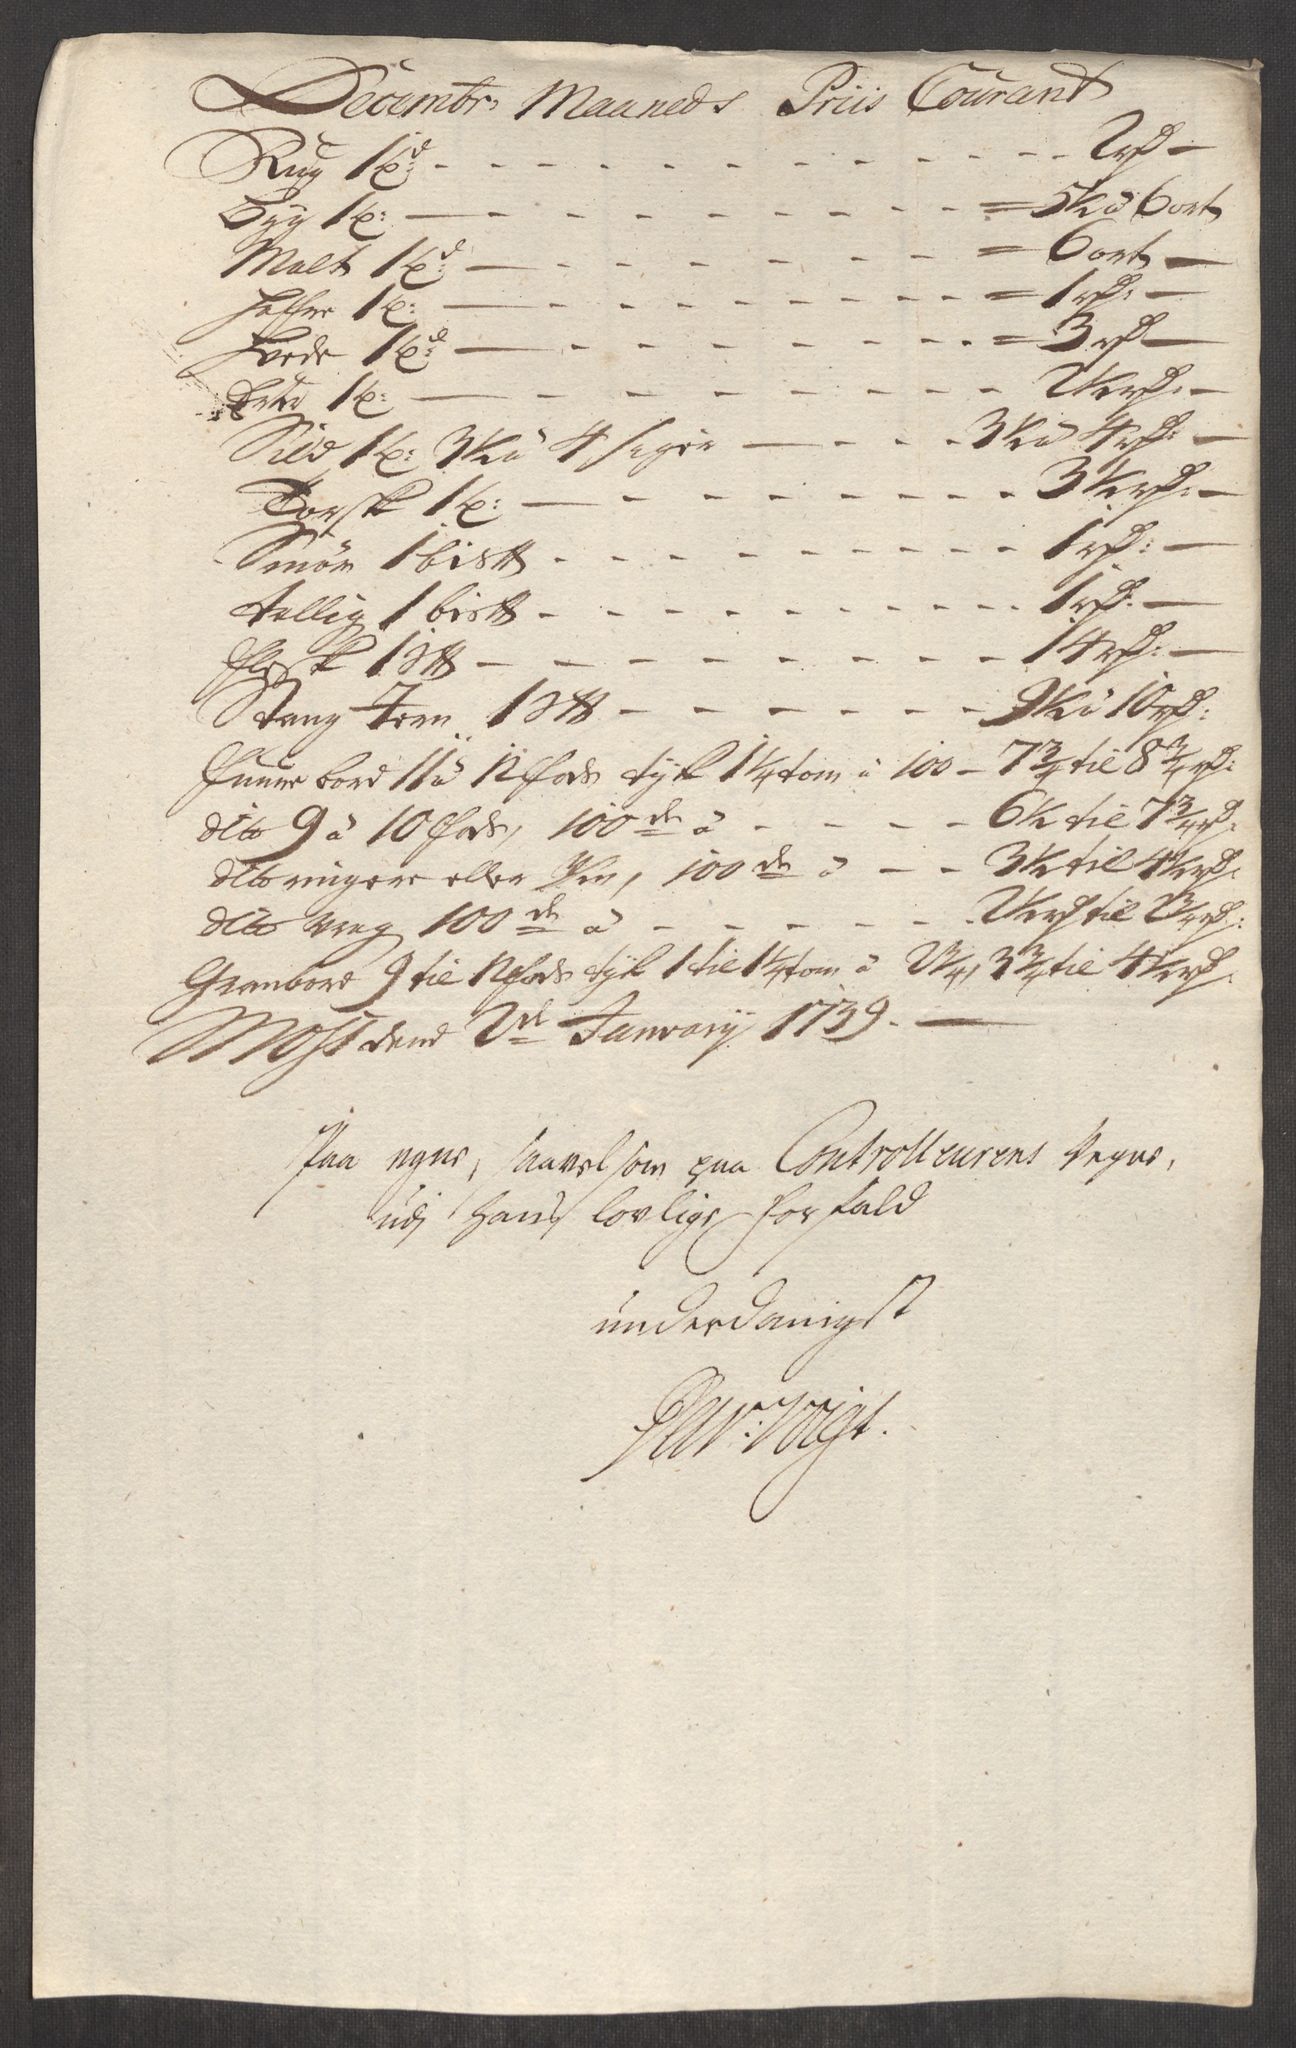 Decembr: Maaneds Priis Courant
Rug 1 td: - - - 2 rd: -
Byg 1 t: - - - 5½ à 6 ort
Malt 1 td: - - - 6 ort -
Hafre 1 t: - - - 1 rd: -
Hvede 1 td: - - - 3 rd -
Erter 1 t: - - - 2½ rd: -
Sild 1 t: 3½ à 4 - - - 3½ à 4 rd: -
Torsk 1 t: - - - 3½ rd: -
Smør 1 bis℔ - - - 1 rd: -
Tallig 1 bis℔ - - - 1 rd: -
Flesk 1 S℔ - - - 14 rd: -
Stang Jern 1 S℔ - - - 9½ à 10 rd:
Fuure bord 11 à 12 fods tyk 1¼ tom à 100 - 7¾ til 8¾ rd:
dito 9 à 10 fods, 100de à - - - 6½ til 7¾ rd:
dito ringere eller, 100de à - - 3½ til 4½ rd:
dito vrag 100de à - - - 2½ rd til 2¾ rd:
Granbord 9 til 12 fods tyk 1 til 1¼ tom à 2¾, 3¾ til 4½ rd:
Moss dend 2de Januarij 1739. -
Paa egne, saavel som paa Controlleurens Vegne,
udj hans lovlige forfald
underdanigst
Vogt.